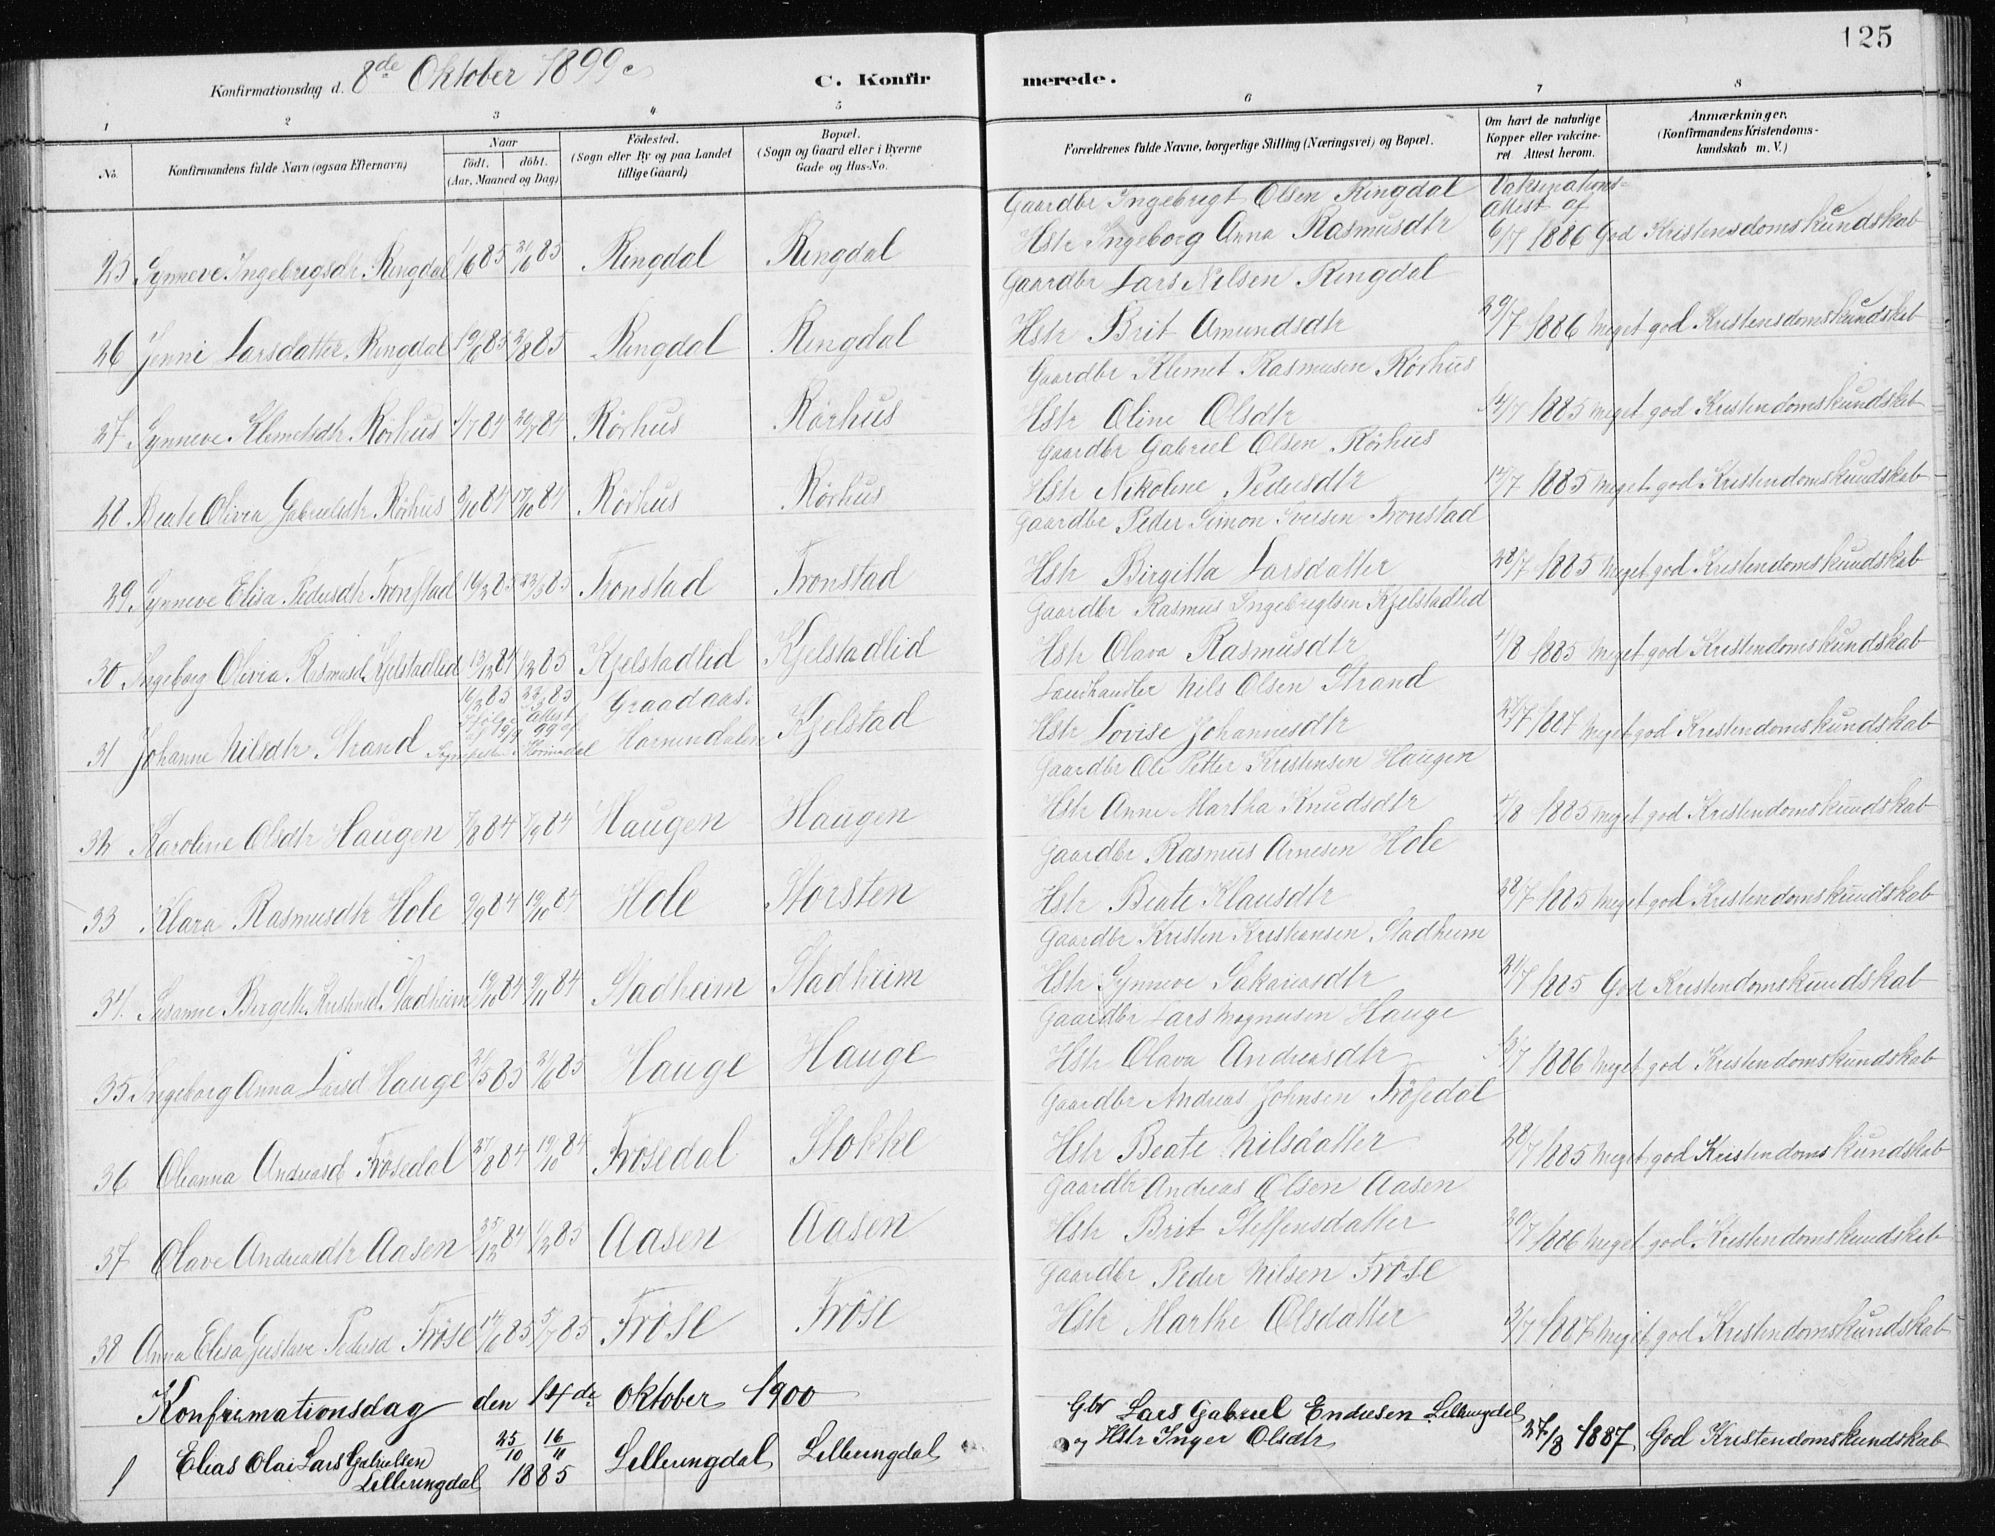 125
Konfirmationsdag d. 8de Oktober 1899
C. Konfirmerede.
1 2 3 4 5 6 7 8
No. Konfirmandens fulde Navn (ogsaa Efternavn) Naar födt. döbt. (Aar, Maaned og Dag) Födested. (Sogn eller By og paa Landet tillige Gaard) Bopæl. (Sogn og Gaard eller i Byerne Gade og Hus-No. Forældrenes fulde Navne, borgerlige Stilling (Næringsvei) og Bopæl. Om havt de naturlige Kopper eller vakcineret Attest herom. Anmærkninger. (Konfirmandens Kristendomskundskab m. V.)
Gaardbr Ingebrigt Olsen Ringdal Vaksinations=
Attest af
25 Synneve Ingebrigsdtr Ringdal 1/6 85 21/6 85 Ringdal Ringdal Hstr Ingeborg Anna Rasmusdtr 6/7 1886 God Kristensdomskundskab
Gaardbr Lars Nilsen Ringdal
26 Jenni Larsdatter Ringdal 85 2/8 85 Ringdal Ringdal Hstr Brit Amundsdtr 29/7 1886 Meget god Kristensdomskundskab
Gaardbr Klemet Rasmusen Rörhus
27 Synneve Klemetsdtr Rörhus 1/7 84 20/7 84 Rörhus Rörhus Hstr Oline Olsdtr 12/7 1885 Meget god Kristendomskundskab
Gaardbr Gabriel Olsen Rörhus
28 Beate Olivia Gabrielsdtr Rörhus 84 84 Rörhus Rörhus Hstr Nikoline Pedersdtr 12/7 1885 Meget god Kristendomskundskab
Gaardbr Peder Simon Iversen Tronstad
29 Synneve Elisa Pedersdtr Tronstad 85 85 Tronstad Tronstad Hstr Birgitta Larsdatter 28/7 1885 Meget god Kristendomskundskab
Gaardbr Rasmus Ingebrigtsen Kjelstadlid
30 Ingeborg Olivia Rasmusd. Kjelstadlid 13/12 84 1/2 85 Kjelstadlid Kjelstadlid Hstr Olava Rasmusdtr 4/8 1885 Meget god Kristendomskundskab
Landhandler Nils Olsen Strand
31 Johanne Nilsdtr Strand 85 85 Graadaas Kjelstad Hstr Lovise Johannesdtr 27/7 1887 Meget god Kristendomskundskab
Gaardbr Ole Petter Kristensen Haugen
32 Karoline Olsdtr Haugen 7/8 84 7/9 84 Haugen Haugen Hstr Anne Martha Knudsdtr 4/8 1885 Meget god Kristendomskundskab
Gaardbr Rasmus Arnesen Hole
33 Klara Rasmusdtr Hole 9/9 84 19/10 84 Hole Storsten Hstr Beate Klausdtr 28/7 1885 Meget god Kristendomskundskab
Gaardbr Kristen Kristiansen Stadheim
34 Susanne Birgitte Kristensd. Stadheim 19/10 84 9/11 84 Stadheim Stadheim Hstr Synneve Sakariasdtr 21/7 1885 God Kristendomskundskab
Gaardbr Lars Magnusen Hauge
35 Ingeborg Anna Larsd Hauge 21/5 85 21/6 85 Hauge Hauge Hstr Olava Andreasdtr /7 1886 Meget god Kristendomskundskab
Gaardbr Andreas Johnsen Frösedal
36 Olianna Andreasd Frösedal 27/8 84 19/10 84 Frösedal Stokke Hstr Beate Nilsdatter 28/7 1885 Meget god Kristendomskundskab
Gaardbr Andreas Olsen Aasen
37 Olave Andreasdtr Aasen 25/12 84 1/2 85 Aasen Aasen Hstr Brit Steffensdatter 20/7 1886 Meget god Kristendomskundskab
Gaardbr Peder Nilsen Fröse
38 Anna Elisa Gustave Pedersd Fröse 14/6 85 5/7 85 Fröse Fröse Hstr Marthe Olsdatter /7 1887 Meget god Kristendomskundskab
Konfirmationsdag den 14de Oktober 1900
Gbr Lars Gabriel Endresen Lilleringdal
1 Elias Olai Lars Gabrielsen 25/10 16/11 Lilleringdal Lilleringdal og Hstr Inger Olsdtr 27/8 1887 God Kristendomskundskab
Lilleringdal 1885